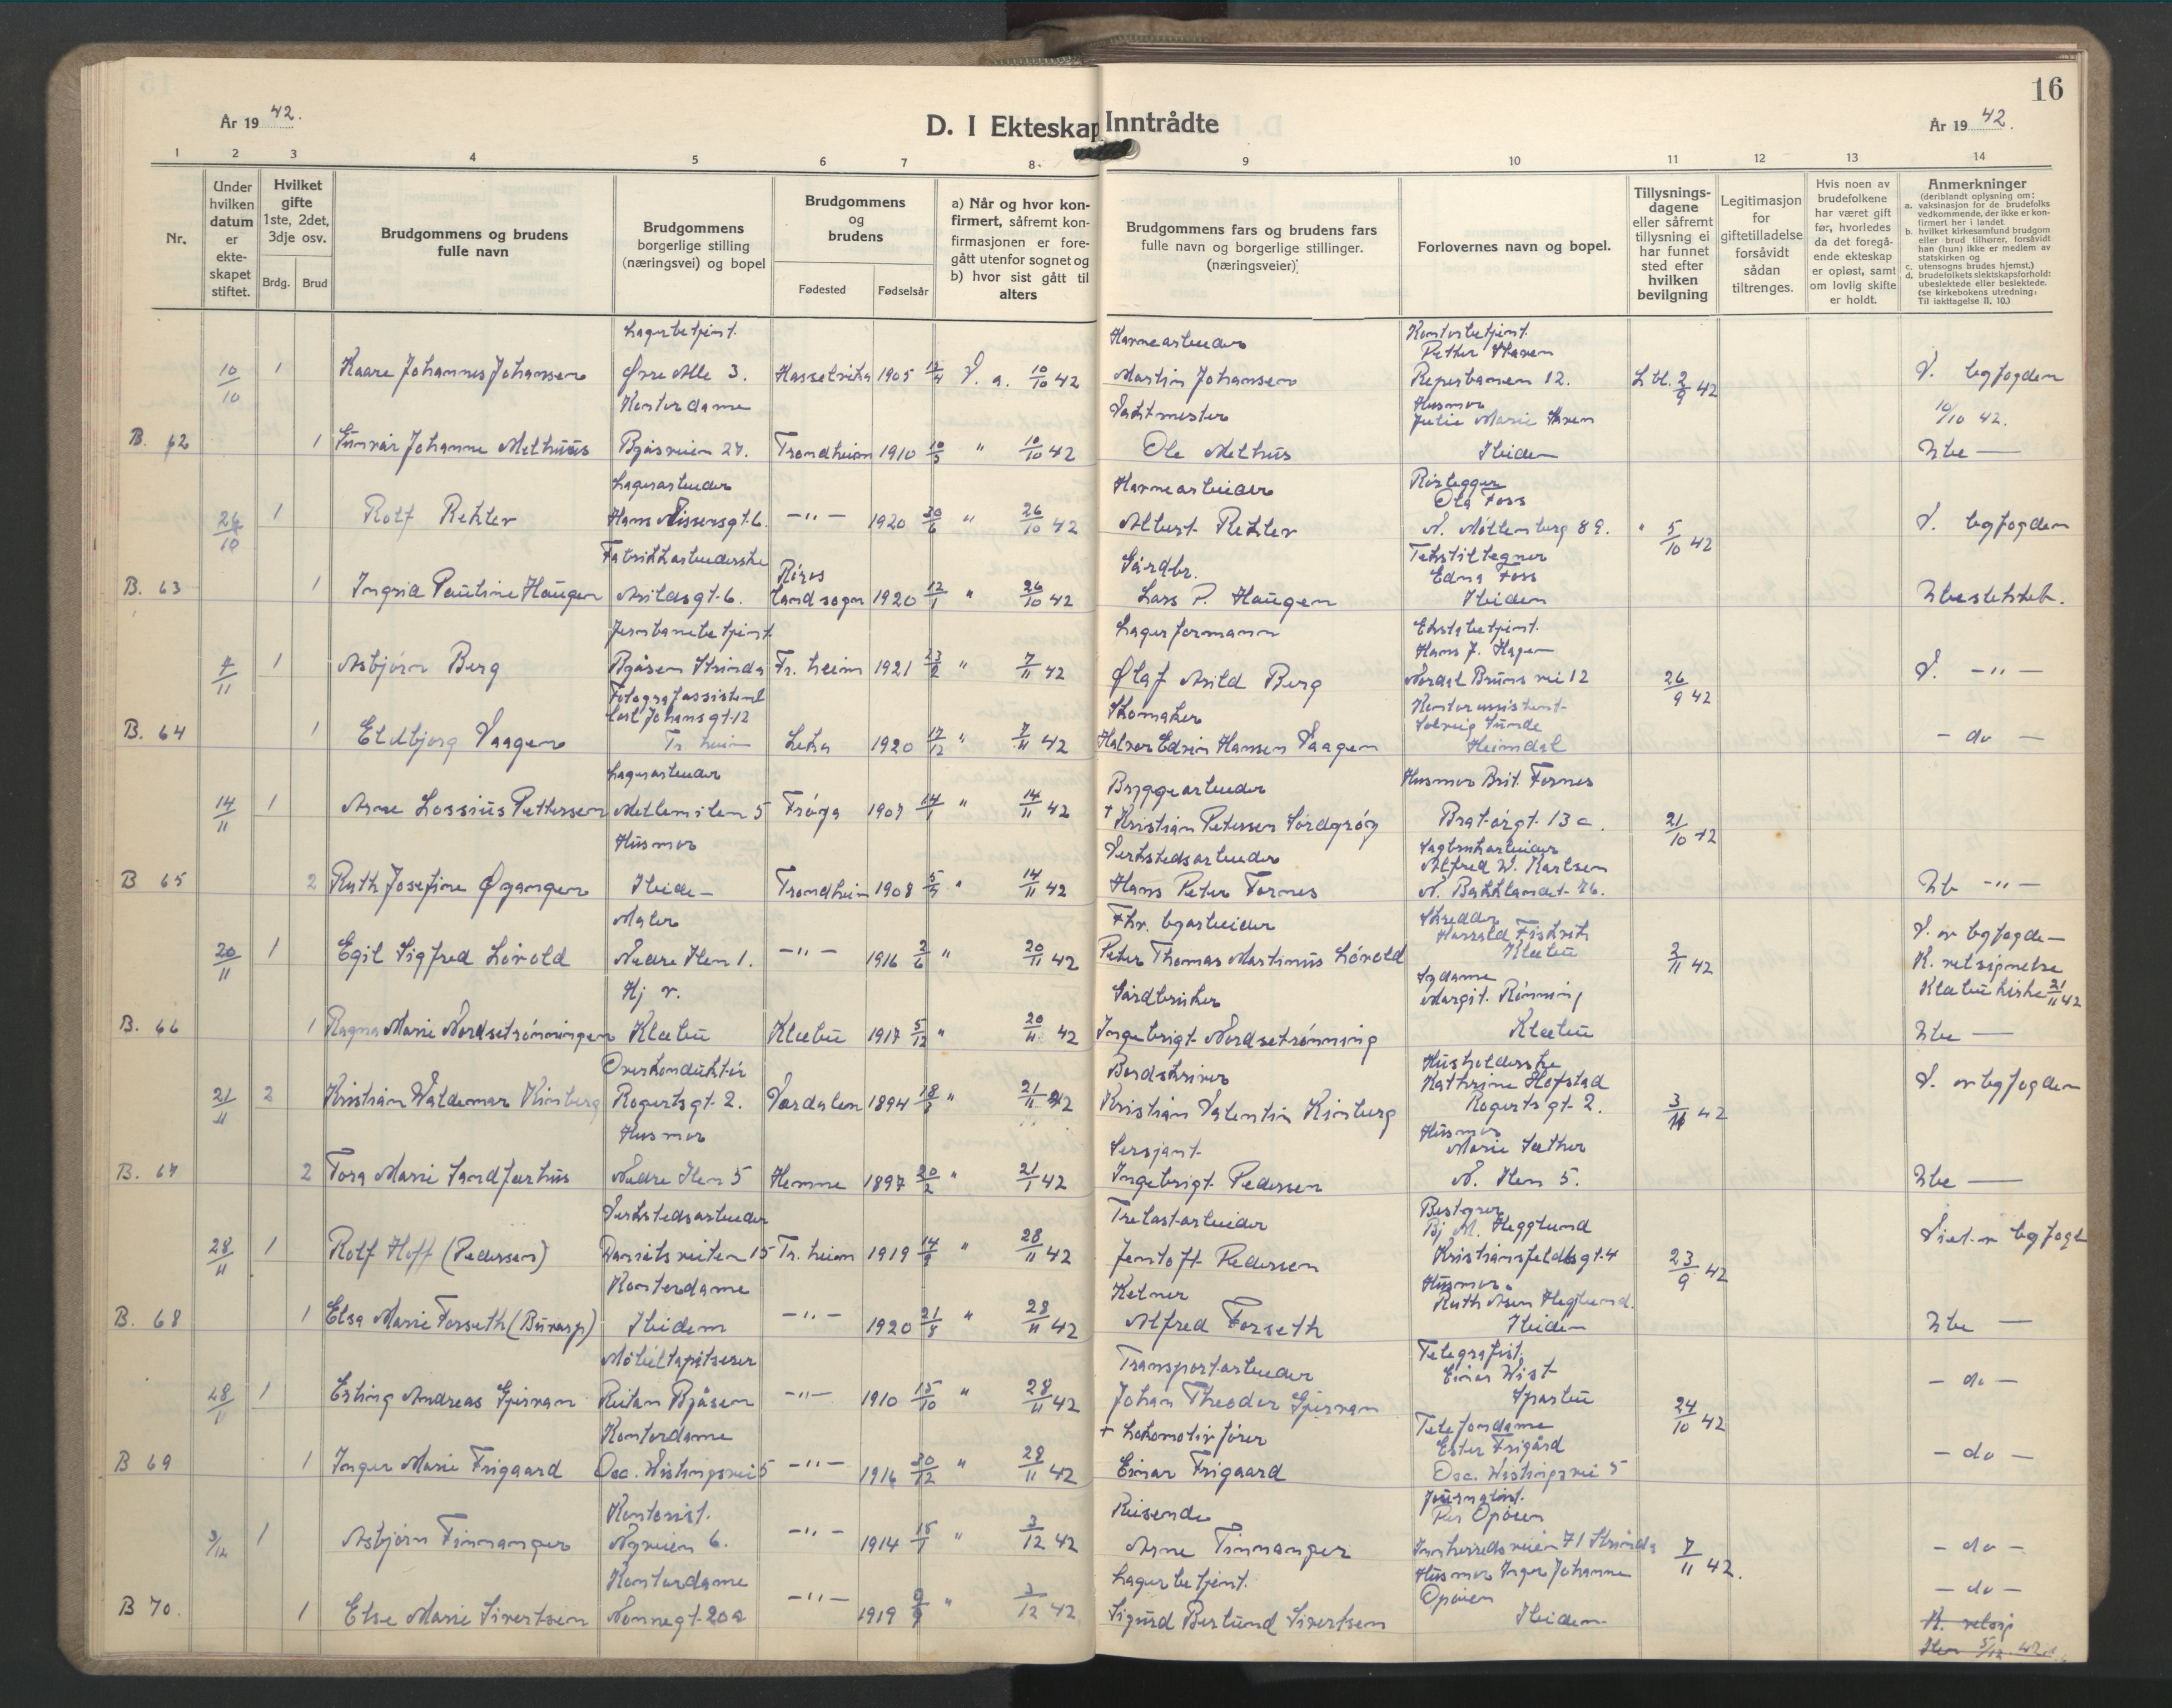 År 19 42.
D. I Ekteskap Inntrådte
År 19 42.
16
1 2 3 4 5 6 7 8. 9 10 11 12 13 14
Nr.
Under hvilken datum er ekteskapet stiftet.
Hvilket gifte 1ste, 2det, 3dje osv.
Brdg. Brud
Brudgommens og brudens fulle navn
Brudgommens borgerlige stilling (næringsvei) og bopel
Brudgommens og brudens
Fødested Fødselsår
a) Når og hvor konfirmert, såfremt konfirmasjonen er foregått utenfor sognet og b) hvor sist gått til alters
Brudgommens fars og brudens fars fulle navn og borgerlige stillinger. (næringsveier);
Forlovernes navn og bopel.
Tillysningsdagene eller såfremt tillysning ei har funnet sted efter hvilken bevilgning
Legitimasjon for giftetilladelse forsåvidt sådan tiltrenges.
Hvis noen av brudefolkene har været gift før, hvorledes da det foregående ekteskap er opløst, samt om lovlig skifte er holdt.
Anmerkninger
(deriblandt oplysning om:
a. vaksinasjon for de brudefolks vedkommende, der ikke er konfirmert her i landet
b. hvilket kirkesamfund brudgom eller brud tilhører, forsåvidt han (hun) ikke er medlem av statskirken og
c. utensogns brudes hjemst,)
d. brudefolkets slektskapsforhold: ubeslektede eller beslektede.
(se kirkebokens utredning, Til iakttagelse II, 10.)
Lagerbetjent. Havnearbeider Kontorbetjent.
Petter Haven
10/10 1 Kaare Johannes Johansen Øvre Alle 3. Hasselvika 1905 12/4 V. a. 10/10 42 Martin Johansen Reperbanen 12. L bl. 2/9 42 V. byfogden
Kontordame Vaktmester Husmor 10/10 42.
Julie Marie Haven
B. 62 1 Gunvår Johanne Melhuus Byåsveien 27. Trondheim 1910 10/3 " 10/10 42 Ole Melhus Ibidem Ube —
Lagerarbeider Havnearbeider Rørlegger
Ola Foss
26/10 1 Rolf Rekter Hans Nissensgt. 6. —"— 1920 30/6 " 26/10 42 Albert Rekter N. Møllenberg 89. " 5/10 42 V. byfogden
Fabrikkarbeiderske Røros Gårdbr. Tekstiltegner
Edna Foss
B. 63 1 Ingrid Pauline Haugen Arildsgt. 6. Landsogn 1920 12/1 " 26/10 42 Lars P. Haugen Ibidem Ubeslektet.
Jernbanebetjent. Lagerformann Ekstrabetjent.
Hans J. Hagen
7/11 1 Asbjørn Berg Byåsen Strinda Tr.heim 1921 23/2 " 7/11 42 Olaf Arild Berg Nordal Bruns vei 12 26/9 42 V. —"—
Fotografassistent Skomaker Kontorassistent
Carl Johansgt. 12 Solveig Sunde
B. 64 1 Eldbjørg Vaagen Tr.heim Leka 1920 17/12 " 7/11 42 Halvor Edvin Hansen Vaagen Heimdal — do —
Lagerarbeider Bryggearbeider Husmor Brit. Fornes
14/11 1 Arne Lossius Pettersen Mellemilen 5 Frøya 1907 14/1 " 14/11 42 † Kristian Petersen Sørdyrøy Bratørgt. 13 a. 21/10 42
Husmor Verkstedsarbeider Sagbrukarbeider
Alfred W. Karlsen
B 65 2 Ruth Josefine Øyangen Ibide— Trondheim 1908 5/7 " 14/11 42 Hans Peter Fornes N. Bakklandet 76. Ub —"—
Maler Fhv. byarbeider Skredder
Harald Fiskvik
20/11 1 Egil Sigfred Løvold Nedre Ilen 1. —"— 1916 2/6 " 20/11 42 Peter Thomas Martinus Løvold Klæbu 3/11 42 V. av byfogde—
K. velsignelse
Hj v. Gårdbruker Sydame Klæbu kirke 21/11 42
Margit. Rønning
B. 66 1 Ragna Marie Nordsetrønningen Klæbu Klæbu 1917 5/12 " 20/11 42 Ingebrigt Nordsetrønning Klæbu Ube —
Overkonduktør Bordskriver Husholderske
Kathrine Hofstad
21/11 2 Kristian Waldemar Kinberg Rogertsgt. 2. Værdalen 1894 18/8 " 21/11 42 Kristian Valentin Kinberg Rogertsgt. 2. 3/11 42 V. av byfogden
Husmor Sersjant. Husmor
Marie Sæther
B. 67 2 Tora Marie Sandfærhus Nedre Ilen 5 Hemne 1897 20/2 " 21/1 42 Ingebrigt Pedersen N. Ilen 5. Ube —
Verkstedsarbeider Trelastarbeider Bestyrer
Bj M. Hegglund
28/11 1 Rolf Hoff (Pedersen) Danielsveiten 15 Tr.heim 1919 14/9 " 28/11 42 Jentoft Pedersen Kristiansfeldtsgt. 4 23/9 42 Viet av byfogd
Kontordame Kelner Husmor
B. 68 1 Elsa Marie Forseth (Burasp) Ibidem —"— 1920 21/8 " 28/11 42 Alfred Forseth Ibidem Ube —
Møbeltapetserer Transportarbeider Telegrafist.
Einar Wist
28/11 1 Erling Andreas Gjervan Reitan Byåsen —"— 1910 15/10 " 28/11 42 Johan Theodor Gjervan Sparbu 24/10 42 — do —
Kontordame † Lokomotivfører Telefondame
Ester Frigård
B 69 1 Inger Marie Frigaard Osc. Wistingsvei 5 —"— 1916 30/12 " 28/11 42 Einar Frigaard Osc. Wistingsvei 5 — do —
Kontorist. Reisende Journalist.
Per Opøien
3/12 1 Asbjørn Finnanger Nyveien 6. —"— 1914 15/1 " 3/12 42 Arne Finnanger Innherredsveien 71 Strinda 7/11 42. — do —
Kontordame Lagerbetjent. Husmor Inger Johanne — do —
Opøien
B 70. 1 Else Marie Sivertsen Nonnegt. 20a —"— 1919 9/9 " 3/12 42 Sigurd Berlund Sivertsen Ibidem K. velsig
Ilen 5/12